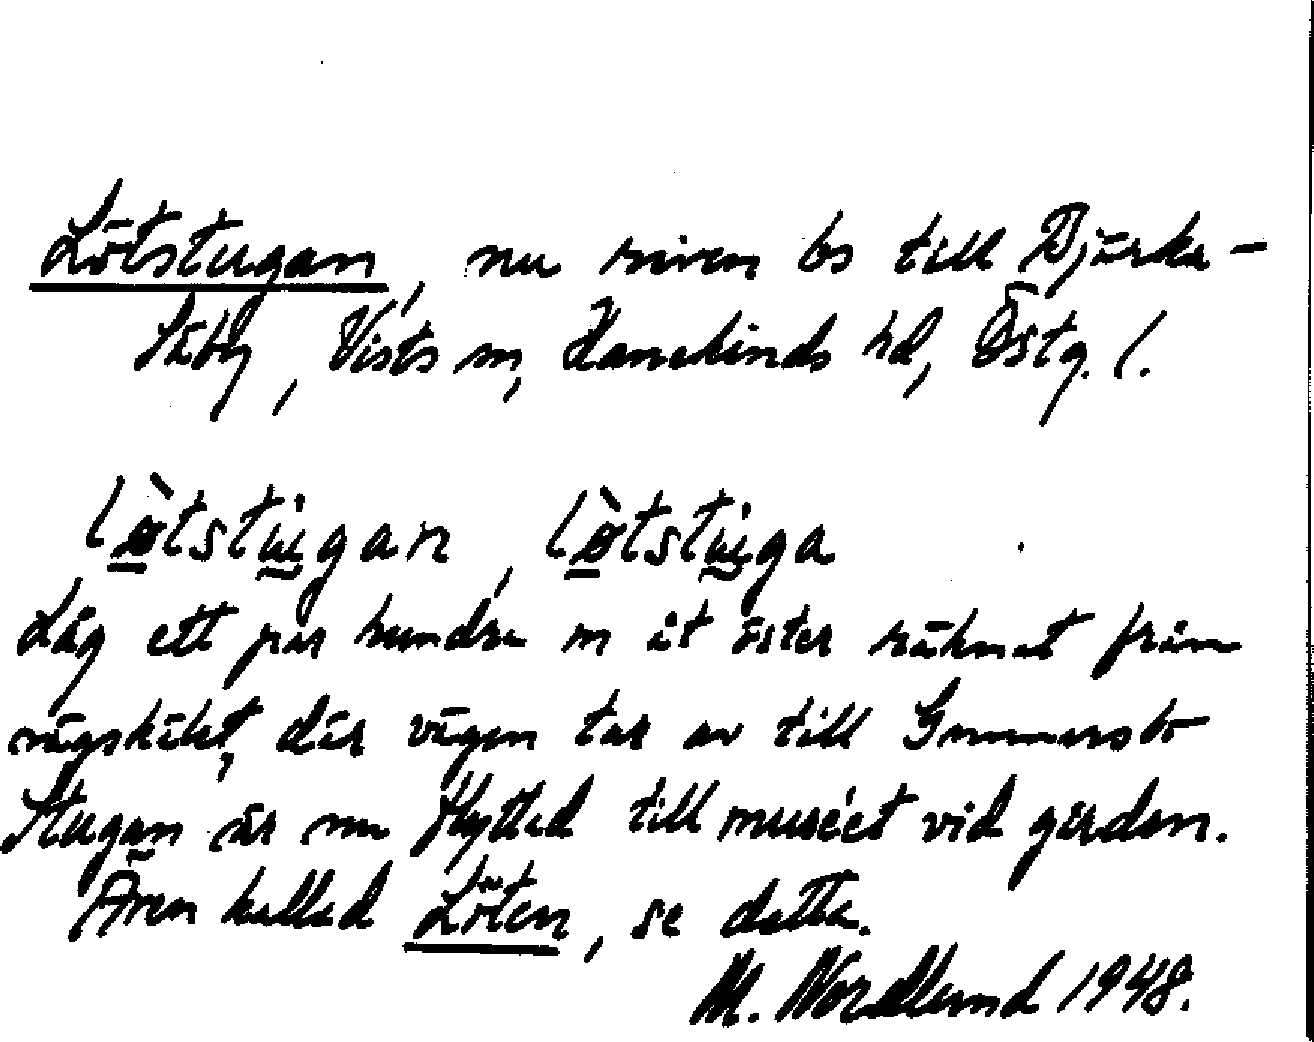 Lötstugan, nu riven bs till Bjärka-
Säby, Vists sn, Hanekinds hd, Östg. l.
lø̀tstu̇gan, lø̀tstu̇ga
Låg ett par hundra m åt öster räknat från
vägskäl, där vägen tar av till Gunnarsbo
Stugan är nu flyttad till muséet vid gården.
Även kallad Löten, se detta.
M. Nordlund 1948.